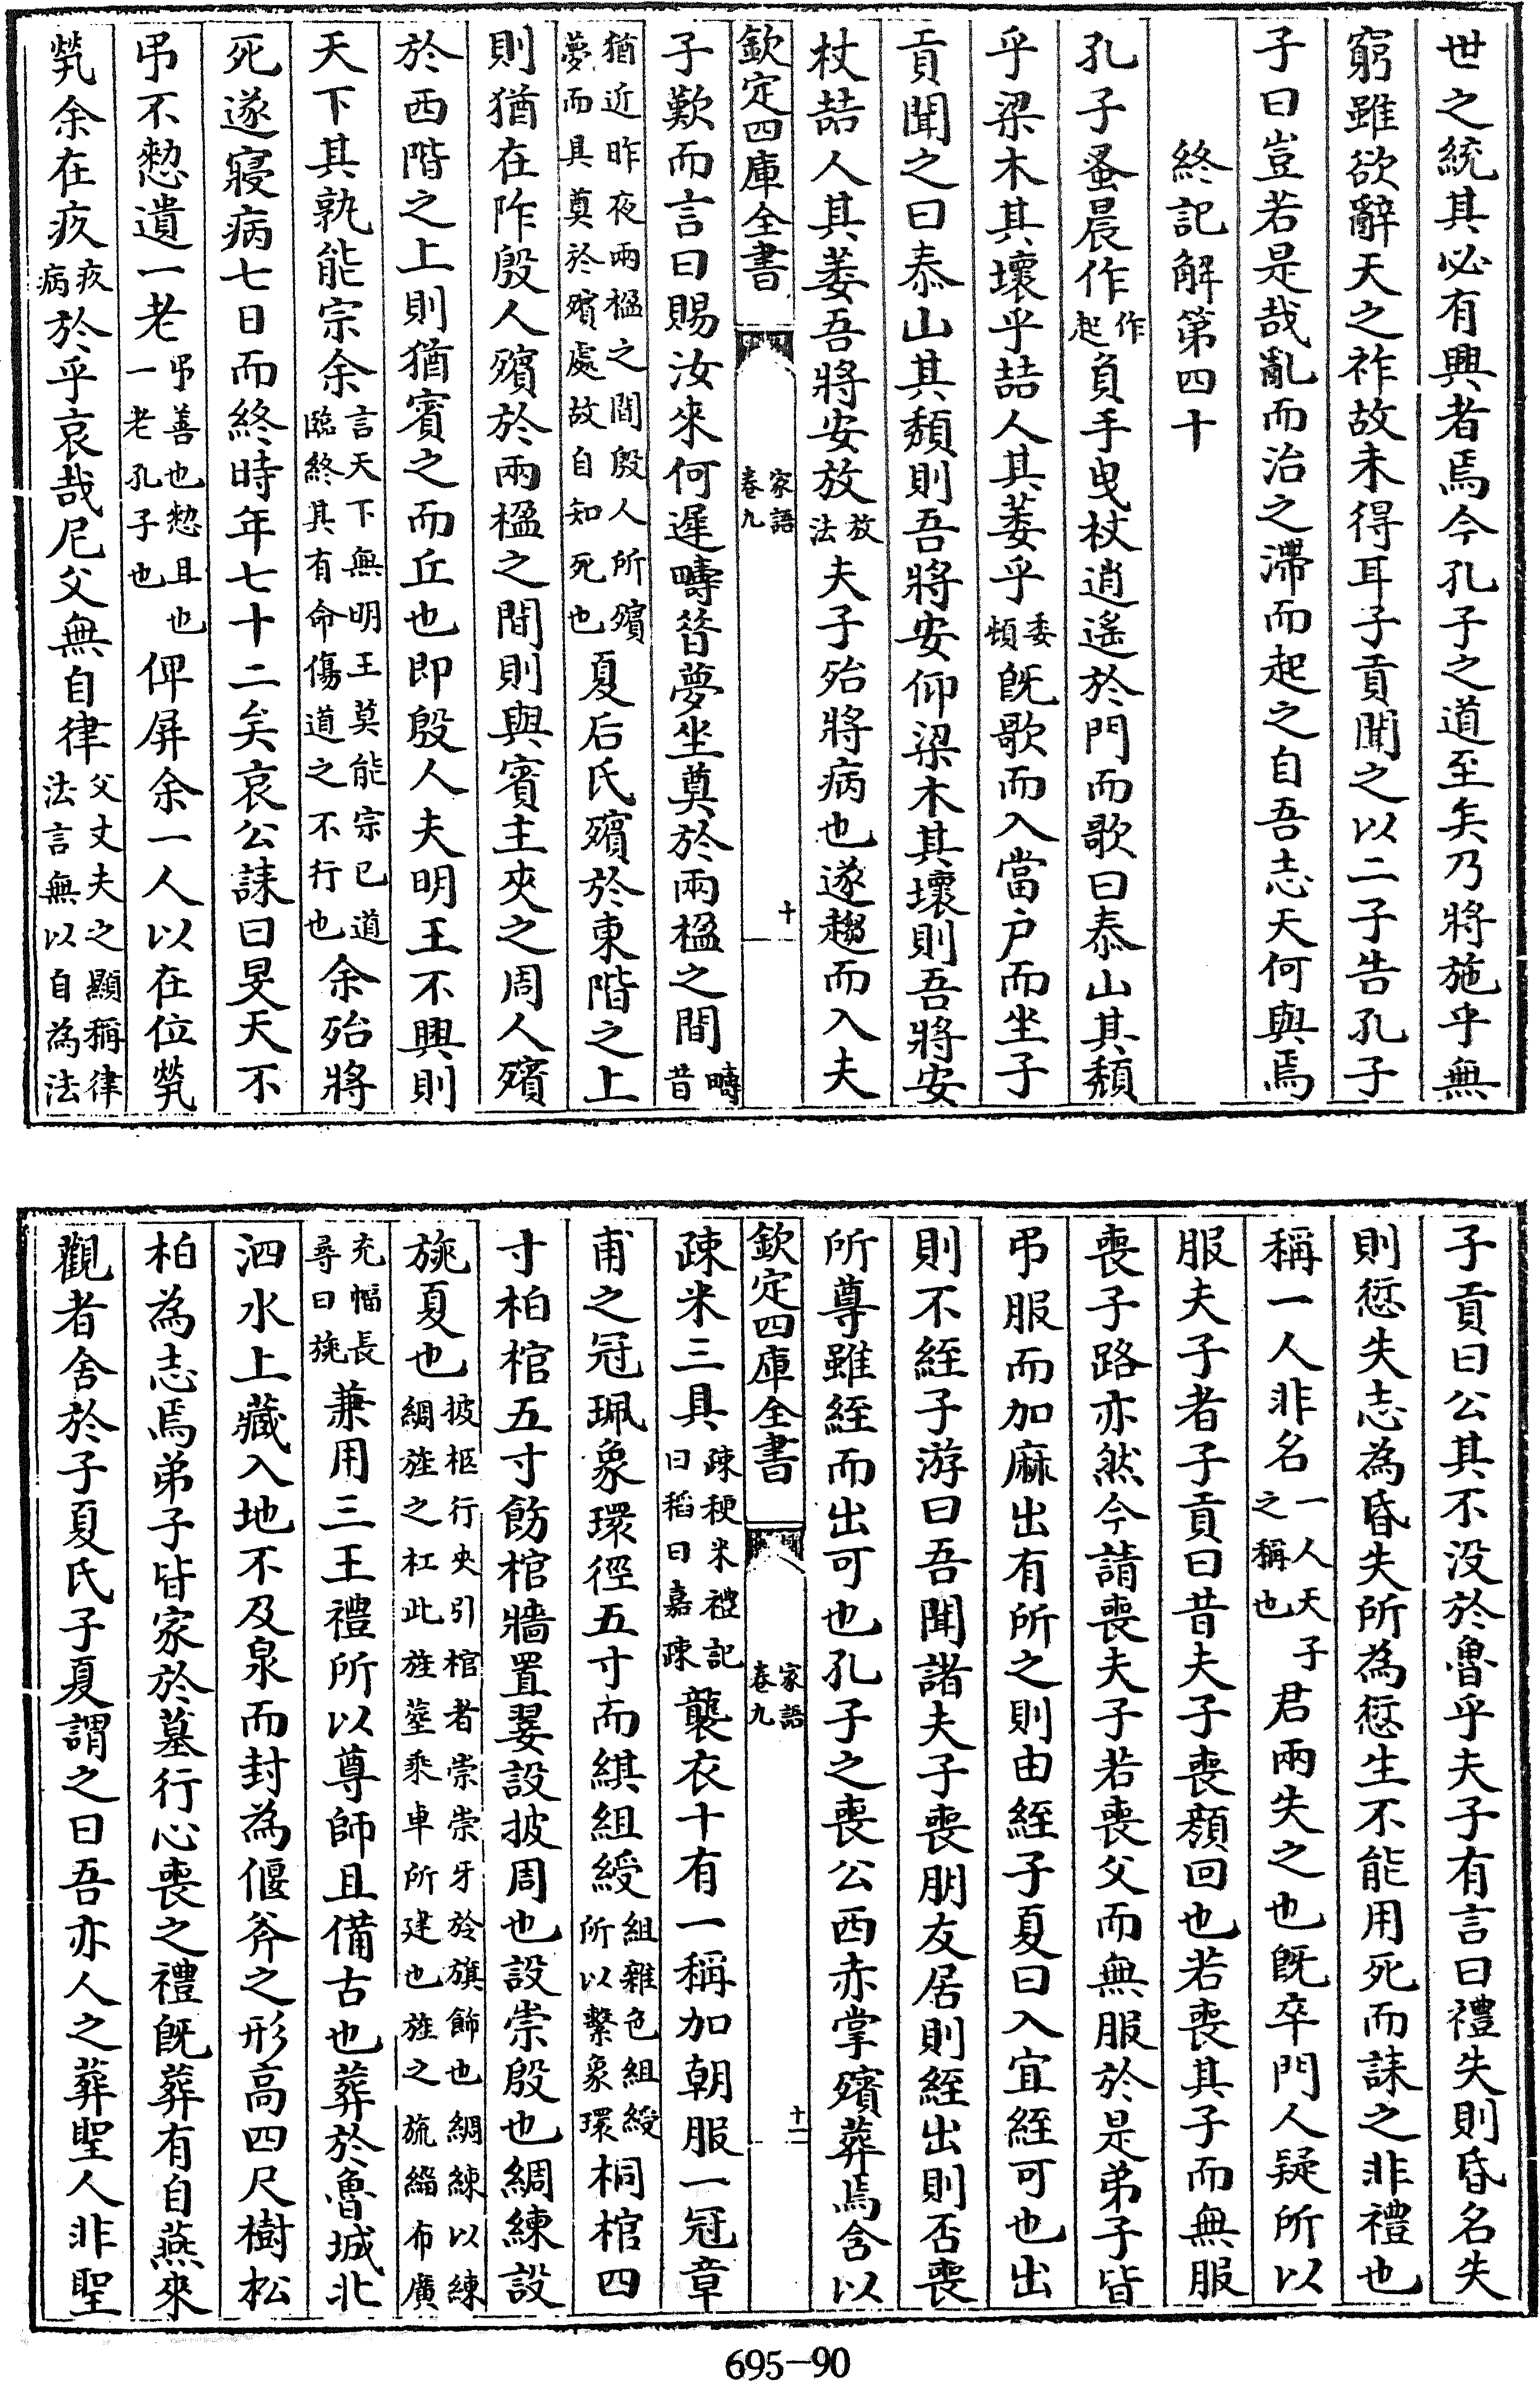 世之統其必有興者焉今孔子之道至矣乃將施乎無
窮雖欲辭天之祚故未得耳子貢聞之以二子告孔子
子曰豈若是哉亂而治之滯而起之自吾志天何與焉
終記解第四十
孔子蚤晨作作起負手曳杖逍遙於門而歌曰泰山其頹
乎梁木其壞乎喆人其萎乎委頓既歌而入當戶而坐子
貢聞之曰泰山其頹則吾將安仰梁木其壞則吾將安
杖喆人其萎吾將安放放法夫子殆將病也遂趨而入夫
欽定四庫全書 家語卷九 十
子歎而言曰賜汝來何遲疇昝夢坐奠於兩楹之間疇昔
猶近昨夜兩楹之間殷人所殯夢而具奠於殯處故自知死也夏后氏殯於東階之上
則猶在阼殷人殯於兩楹之間則與賓主夾之周人殯
於西階之上則猶賓之而丘也即殷人夫明王不興則
天下其孰能宗余言天下無明王莫能宗已道臨終其有命傷道之不行也余殆將
死遂寢病七日而終時年七十二矣哀公誄曰旻天不
弔不憖遺一老弔善也憖且也一老孔子也俾屏余一人以在位煢
煢余在疚疚病於乎哀哉尼父無自律父丈夫之顯稱律法言無以自為法
子貢曰公其不沒於魯乎夫子有言曰禮失則昏名失
則愆失志為昏失所為愆生不能用死而誄之非禮也
稱一人非名一人天子之稱也君兩失之也既卒門人疑所以
服夫子者子貢曰昔夫子喪顏回也若喪其子而無服
喪子路亦然今請喪夫子若喪父而無服於是弟子皆
弔服而加麻出有所之則由絰子夏曰入宜絰可也出
則不絰子游曰吾聞諸夫子喪朋友居則絰出則否喪
所尊雖絰而出可也孔子之喪公西赤掌殯葬焉含以
欽定四庫全書 家語卷九 十一
疎米三具疎粳米禮記曰稻曰嘉疎襲衣十有一稱加朝服一冠章
甫之冠珮象環徑五寸而綨組綬組雜色組綬所以繫象環桐棺四
寸柏棺五寸飭棺牆置翣設披周也設崇殷也綢練設
旐夏也披柩行夾引棺者崇崇牙於旗飾也綢練以練綢旌之杠此旌葬乘車所建也旌之旒緇布廣
充幅長尋曰旐兼用三王禮所以尊師且備古也葬於魯城北
泗水上藏入地不及泉而封為偃斧之形高四尺樹松
柏為志焉弟子皆家於墓行心喪之禮既葬有自燕來
觀者舍於子夏氏子夏謂之曰吾亦人之葬聖人非聖
695-90